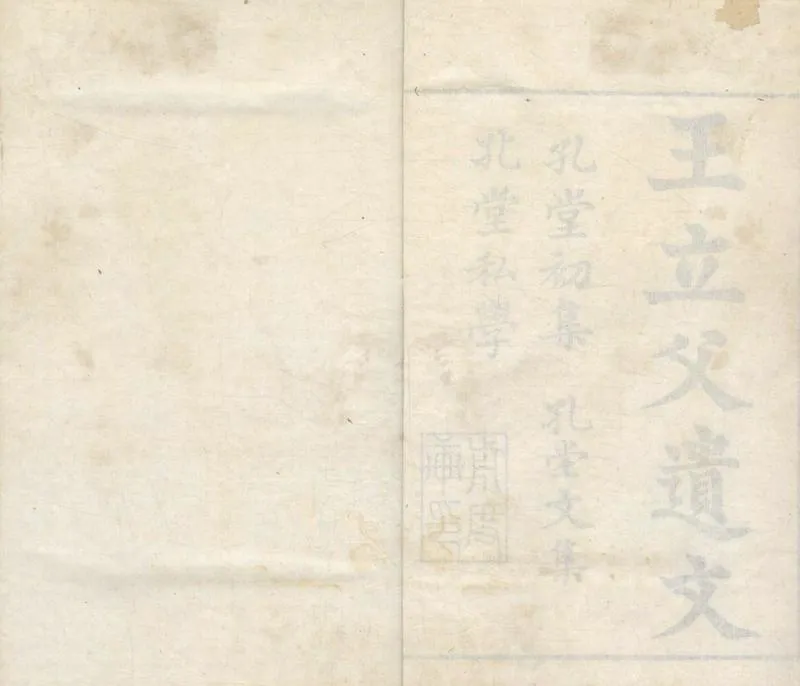 王立父遺文
孔堂初集 孔堂文集
孔堂私學